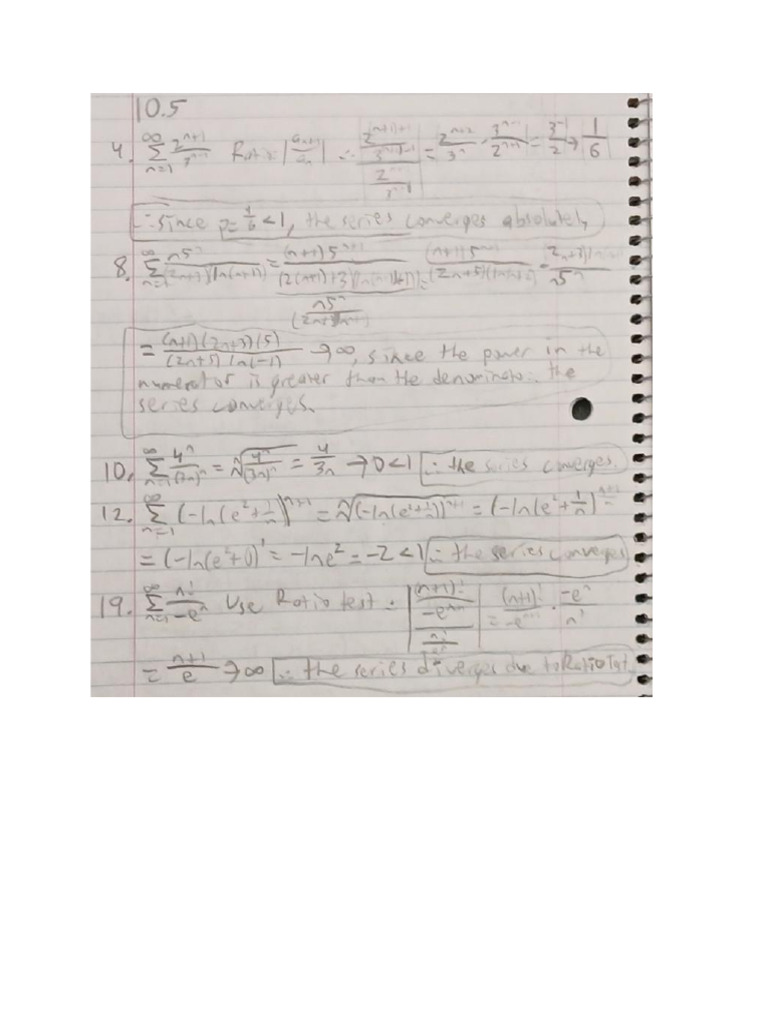 10.5
4. ∞ Σ n=1 2^(n+1)/3^(n-1) Ratio: |a_(n+1)/a_n| ∴ = 2^(n+2)/3^n · 3^(n-1)/2^(n+1) = 3^-1/2 → 1/6
∴ since p = 1/6 < 1, the series converges absolutely
8. ∞ Σ n=1 n5^n/((2n+3) ln(n+1)) = (n+1)5^(n+1)/(2(n+1)+3)
= (n+1)(2n+3)(5)/(2n+5) → ∞, since the power in the
numerator is greater than the denominator ∴ the
series converges.
10. ∞ Σ n=1 4^n/(3n)^n = n√(4^n/(3n)^n) = 4/3n → 0 < 1 ∴ the series converges.
12. ∞ Σ n=1 (-ln(e^2+1/n))^(n+1) = n√(-ln(e^2+1/n))^(n+1) = (-ln(e^2+1/n))^((n+1)/n)
= (-ln(e^2+0))^1 = -ln e^2 = -2 < 1 ∴ the series converges
19. ∞ Σ n=1 n!/-e^n Use Ratio test. |(n+1)!/-e^(n+1)| = (n+1)!/-e^(n+1) · -e^n/n!
= n+1/e → ∞ ∴ the series diverges due to Ratio Tst.